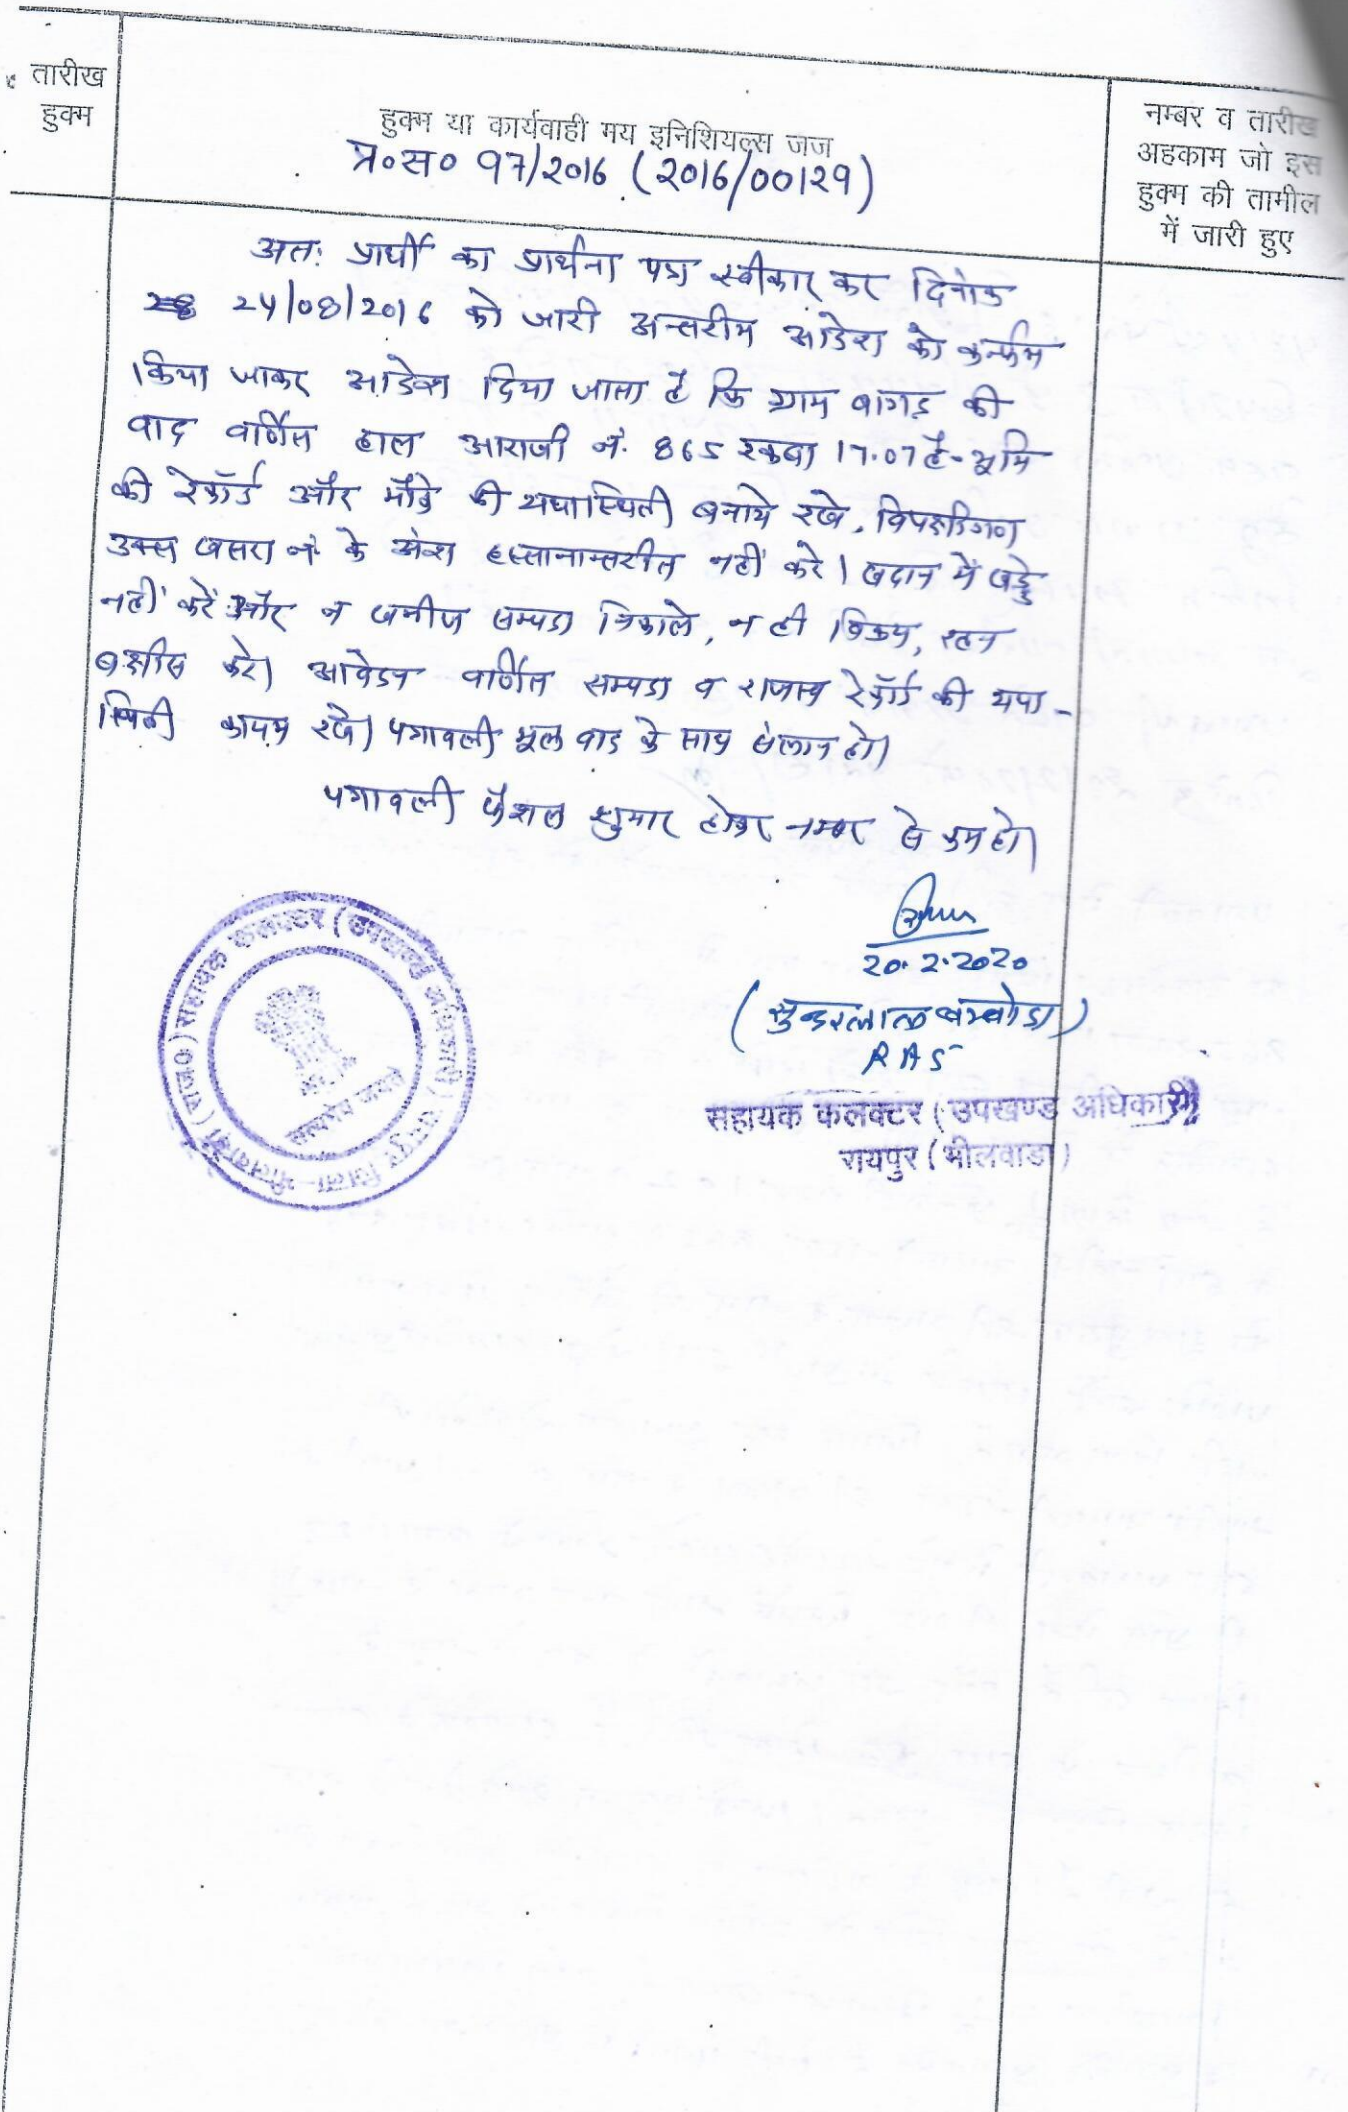 तारीख
हुक्म
हुक्म या कार्यवाही मय इनिशियल्स जज
प्र०स० 97/2016 (2016/00129)
नम्बर व तारीख
अहकाम जो इस
हुक्म की तामील
में जारी हुए
अतः प्रार्थी का प्रार्थना पत्र स्वीकार कर दिनांक
24/08/2016 को जारी अन्तरीम आदेश को कन्फर्म
किया जाकर आदेश दिया जाता है कि ग्राम बागड की
वाद वर्णित हाल आराजी नं. 865 रकबा 17.07 है- भूमि
की रेकॉर्ड और मौके की यथास्थिती बनाये रखे, विपक्षीगण
उक्त खसरा नं के अंश हस्तानान्तरीत नहीं करे। खदान में खड्डे
नहीं करें और न खनीज सम्पदा निकाले, न ही विक्रय, रहन
बक्षीस करे। आवेदन वर्णित सम्पदा व राजस्व रेकॉर्ड की यथा-
स्थिती कायम रखे। पत्रावली मूल वाद के साथ संलग्न हो।
पत्रावली फैशल शुमार होकर नम्बर से कम हो।
20.2.2020
(सुन्दरलाल बम्बोडा)
RAS
सहायक कलक्टर (उपखण्ड अधिकारी)
रायपुर (भीलवाडा)
सहायक कलक्टर (उपखण्ड अधिकारी) रायपुर जिला-भीलवाड़ा (राज०)
सत्यमेव जयते